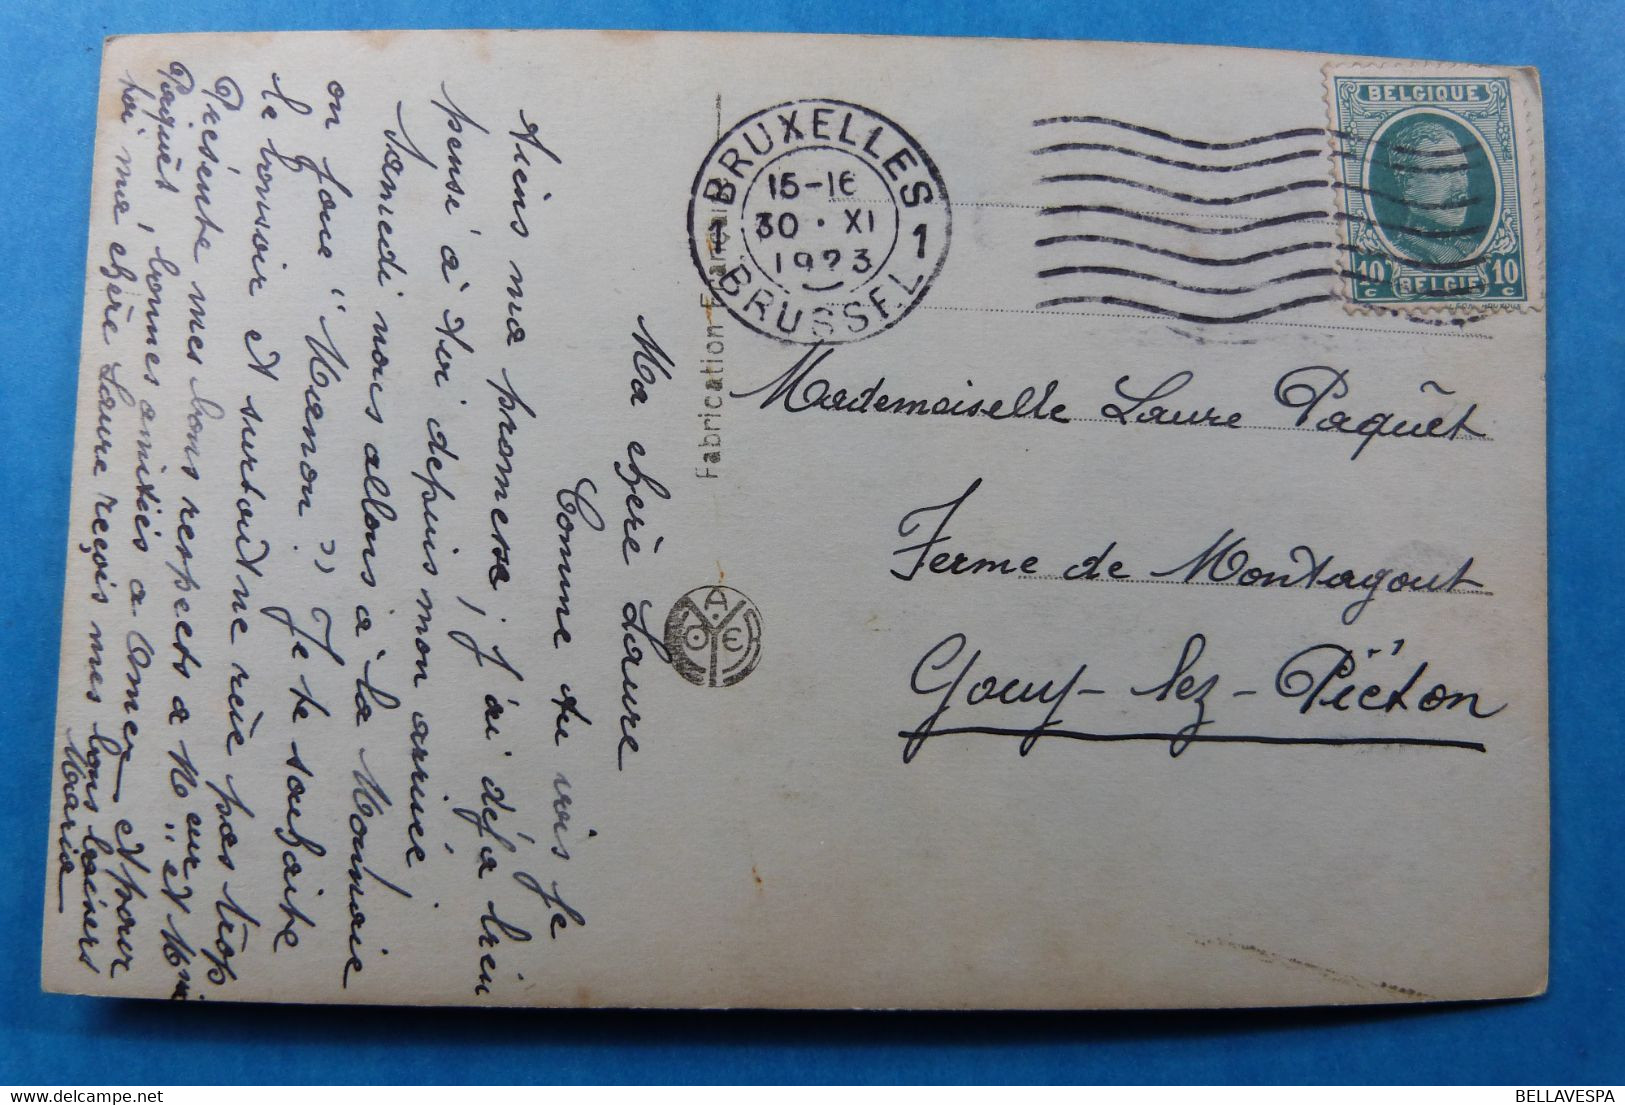 Ma chère Laure
Comme tu vois je
tiens ma promesse, j'ai déjà bien
pensé à toi depuis mon arrivée,
Samedi nous allons à la Monnaie
on joue "Manon", Je te souhaite
le bonsoir et surtout ne rêve pas trop
Présente mes bons respects a Mr et Mme
Paquêt, bonnes amitiés a Omer et pour
toi ma chère Laure reçois mes bons baisers
Maria
Fabrication Française
BRUXELLES
15-16
30 · XI
1923
1 1
BRUSSEL
BELGIQUE
10 c 10 c
BELGIE
Mademoiselle Laure Paquêt
Ferme de Montagout
Gouy-lez-Piéton
BELLAVESPA